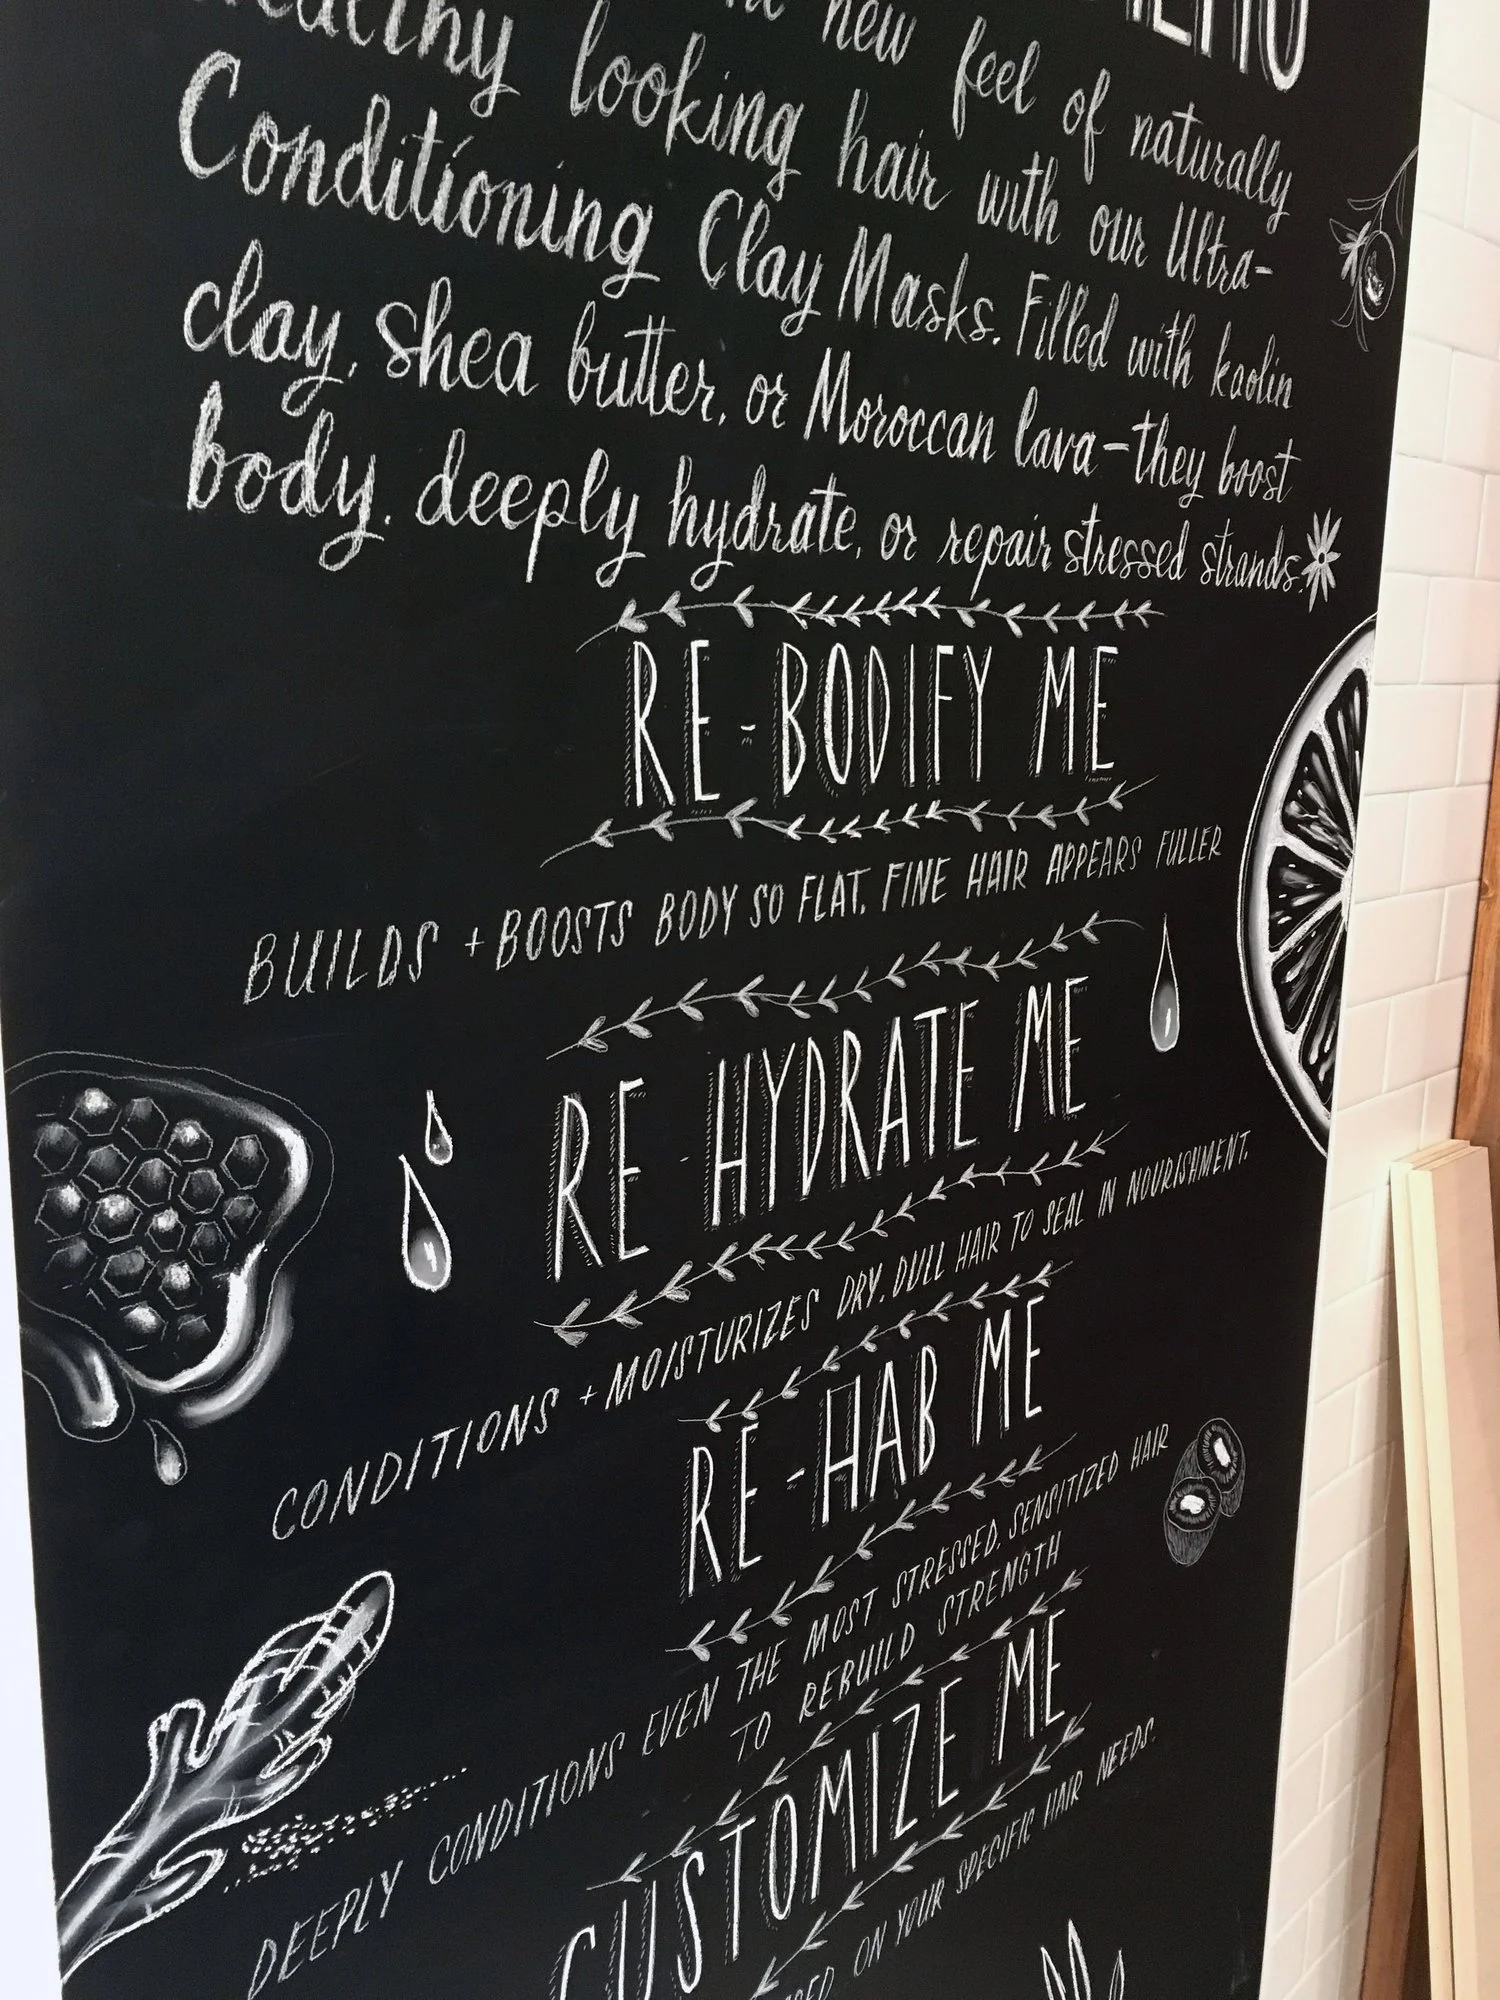 new feel of naturally
healthy looking hair with our Ultra-
Conditioning Clay Masks. Filled with kaolin
clay, shea butter, or Moroccan lava-they boost
body, deeply hydrate, or repair stressed strands.
RE-BODIFY ME
BUILDS + BOOSTS BODY SO FLAT, FINE HAIR APPEARS FULLER
RE-HYDRATE ME
CONDITIONS + MOISTURIZES DRY, DULL HAIR TO SEAL IN NOURISHMENT.
RE-HAB ME
DEEPLY CONDITIONS EVEN THE MOST STRESSED, SENSITIZED HAIR
TO REBUILD STRENGTH
CUSTOMIZE ME
ON YOUR SPECIFIC HAIR NEEDS.